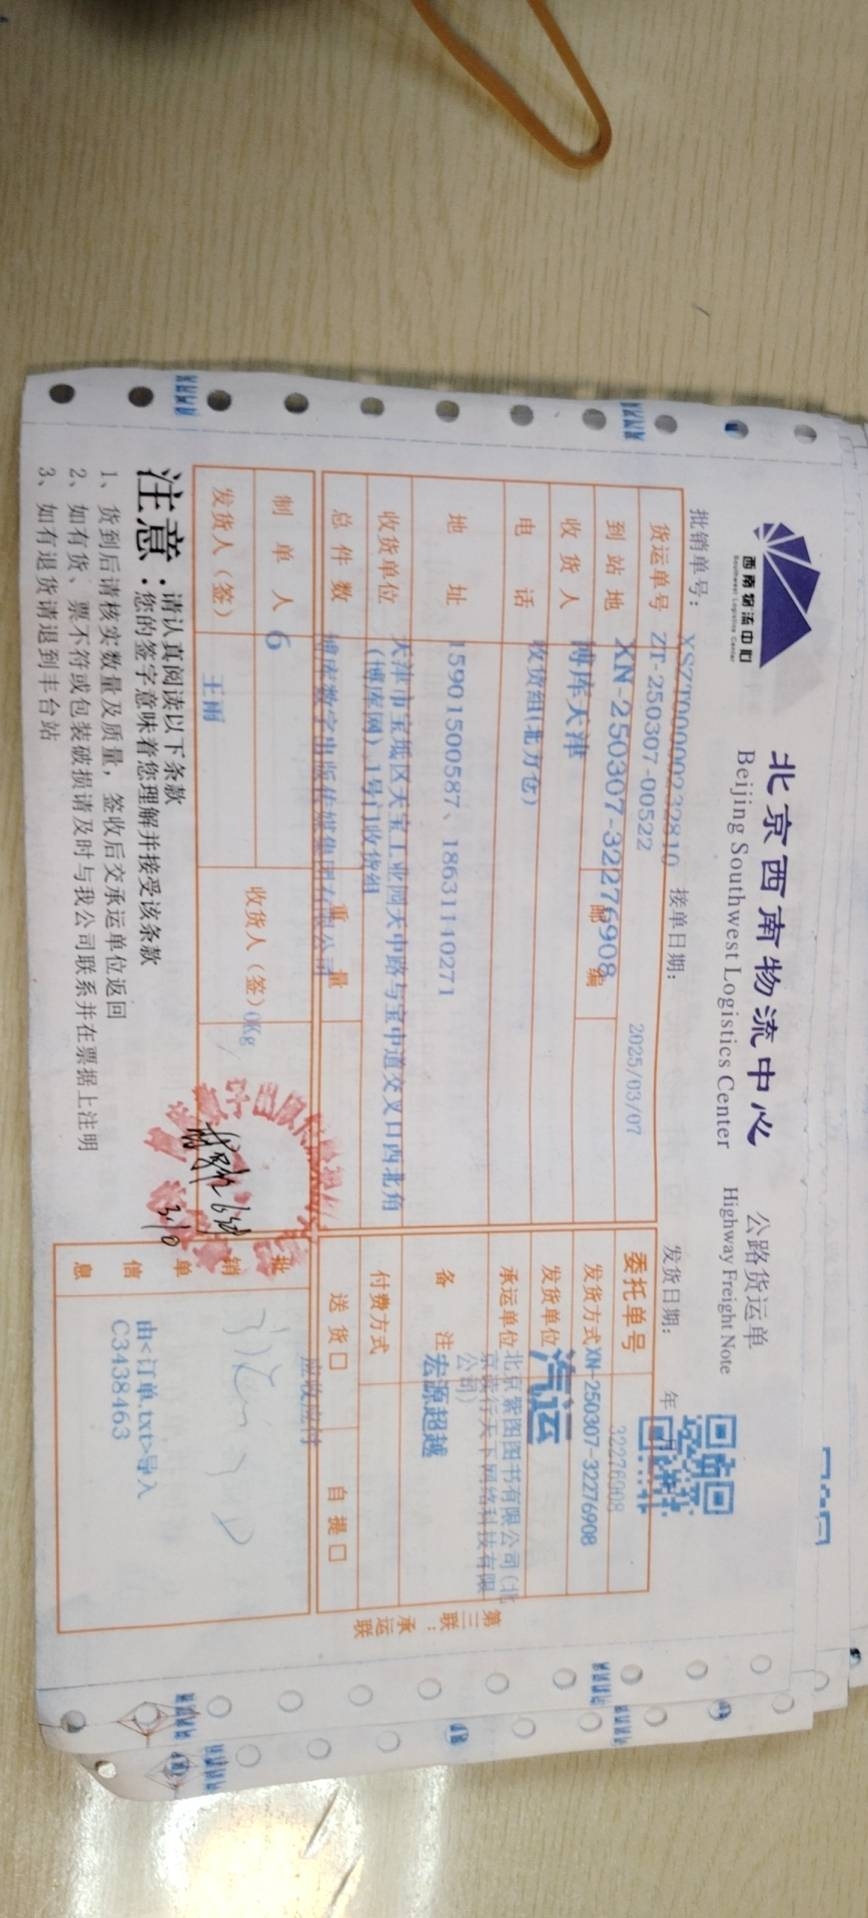 西南物流中心
Southwest Logistics Center
北京西南物流中心
Beijing Southwest Logistics Center
公路货运单
Highway Freight Note
批销单号：
XSZT000000232810
接单日期：
2025/03/07
发货日期：
年
货运单号
ZT-250307-00522
委托单号
32276908
到站地
XN-250307-32276908
邮编
发货方式
XN-250307-32276908
收货人
博库天津
发货单位
汽运
电话
收货组(北方仓)
承运单位
北京紫图图书有限公司(北
京凌行天下网络科技有限
公司)
地址
15901500587、18631140271
备注
宏源超越
收货单位
天津市宝坻区天宝工业园天中路与宝中道交叉口西北角
(博库网)1号门收货组
付费方式
总件数
博库数字出版传媒集团有限公司
重量
送货□
自提□
应收应付
制单人
6
收货人（签）
0Kg
发货人（签）
王雨
3.10
批销单信息
由<订单.txt>导入
C3438463
第三联：承运联
注意：
请认真阅读以下条款
您的签字意味着您理解并接受该条款
1、货到后请核实数量及质量，签收后交承运单位返回
2、如有货、票不符或包装破损请及时与我公司联系并在票据上注明
3、如有退货请退到丰台站